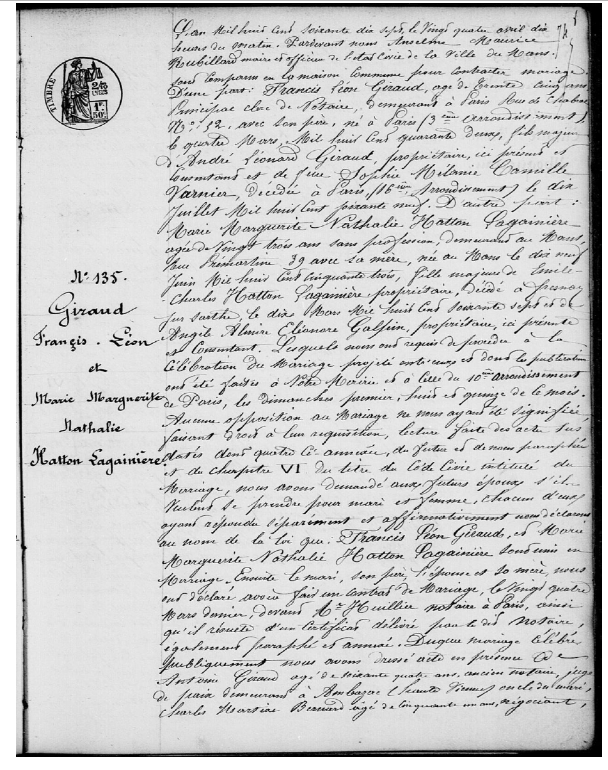 L'an Mil huit Cent soixante dix sept, le Vingt quatre avril dix
heures du matin. Pardevant nous Anselme Maurice
Rubillard maire et officier de l'état civil de la Ville du Mans.
Sont comparus en la maison Commune pour contracter mariage
D'une part: Francis Léon Giraud, âgé de trente cinq ans
Principal clerc de Notaire, demeurant à Paris Rue de Chabrol
N° 52, avec son père, né à Paris (3ème arrondissement)
le quatre Mars, Mil huit Cent quarante deux, fils majeur
d'André Léonard Giraud, propriétaire, ici présent et
Consentant et de feue Sophie Mélanie Camille
Varnier, décédée à Paris, (16ème Arrondissement) le dix
Juillet Mil huit Cent soixante neuf. D'autre part:
Marie Marguerite Nathalie Hatton Lagainière
âgée de Vingt trois ans sans profession, demeurant au Mans,
Rue Prémartine 39 avec sa mère, née au Mans le dix neuf
Juin Mil huit Cent Cinquante trois, fille majeure de Emile
Charles Hatton Lagainière, propriétaire, Décédé à Fresnay
sur Sarthe, le dix Mars Mil huit Cent Soixante sept et de
Angèle Almire Eléonore Galpin, propriétaire, ici présente
et Consentant. Lesquels nous ont requis de procéder à la
Célébration du Mariage projeté entr'eux et dont les publications
ont été faites à Notre Mairie et à celle du 10ème arrondissement
de Paris, les dimanches premier, huit et quinze de ce mois.
Aucune opposition au Mariage ne nous ayant été signifiée
faisant droit à leur réquisition, lecture faite des actes sus
datés dont quatre annexés, du futur et de nous paraphés
et du chapitre VI du titre du Code Civil intitulé du
Mariage, nous avons demandé aux futurs époux s'ils
veulent se prendre pour mari et femme, chacun d'eux
ayant répondu séparément et affirmativement nous déclarons
au nom de la loi que Francis Léon Giraud, et Marie
Marguerite Nathalie Hatton Lagainière sont unis en
Mariage. Ensuite le mari, son père, l'épouse et sa mère, nous
ont déclaré avoir fait un contrat de Mariage, le Vingt quatre
Mars dernier, devant Me Huillier notaire à Paris, ainsi
qu'il résulte d'un certificat délivré par le dit notaire,
également paraphé et annexé. Duquel mariage célébré
publiquement nous avons dressé acte en présence de
Antoine Giraud âgé de soixante quatre ans, ancien notaire, juge
de paix demeurant à Ambazac (haute Vienne) oncle du mari,
Charles Bernard âgé de cinquante un ans, négociant,
TIMBRE
N° 135.
Giraud
Françis. Léon
et
Marie Marguerite
Nathalie
Hatton Lagainière